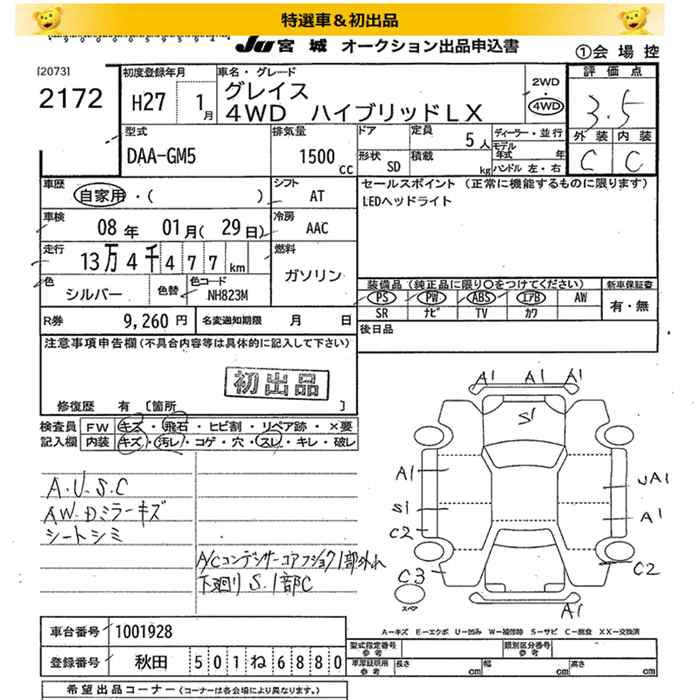 特選車＆初出品
JU 宮城 オークション出品申込書
①会場控
[2073]
2172
初度登録年月
H27 1月
車名・グレード
グレイス
4WD ハイブリッドLX
2WD
4WD
評価点
3.5
外装 内装
C C
型式
DAA-GM5
排気量
1500 cc
ドア
形状 SD
定員 5人
積載 kg
ディーラー・並行
モデル年式 年
ハンドル 左・右
車歴
自家用・( )
シフト
AT
セールスポイント (正常に機能するものに限ります)
LEDヘッドライト
車検
08年 01月(29日)
冷房
AAC
走行
13万4千477km
燃料
ガソリン
色
シルバー
色替
色コード
NH823M
装備品 (純正品に限り○をつけてください)
PS PW ABS エアB AW
SR ナビ TV カワ
新車保証書
有・無
R券 9,260円
名変通知期限 月 日
後日品
注意事項申告欄(不具合内容等は具体的に記入して下さい)
初出品
修復歴 有 [箇所 ]
検査員記入欄
FW キズ・飛石・ヒビ割・リペア跡・×要
内装 キズ・汚レ・コゲ・穴・スレ・キレ・破レ
A.U.S.C
AW.Dミラーキズ
シートシミ
A/Cコンデンサーコアフショク1部外れ
下廻りS.1部C
A1 A1 A1
S1
A1
S1
C2
C3
UA1
A1
C2
A1
スペア
A－キズ E－エクボ U－凹み W－補修跡 S－サビ C－腐食 XX－交換済
車台番号 1001928
登録番号 秋田 501ね6880
型式指定番号 参考
類別区分番号 参考
車庫証明用 参考
長さ cm 幅 cm 高さ cm
希望出品コーナー (コーナーは各会場により異なります。)